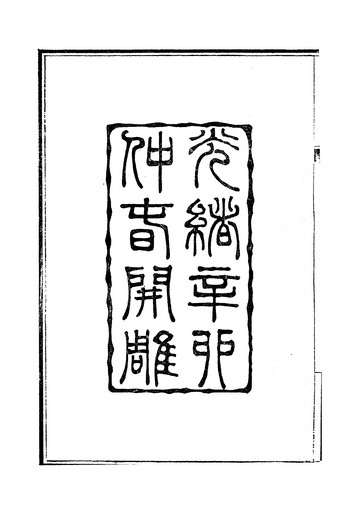 光緒辛卯
仲春開雕